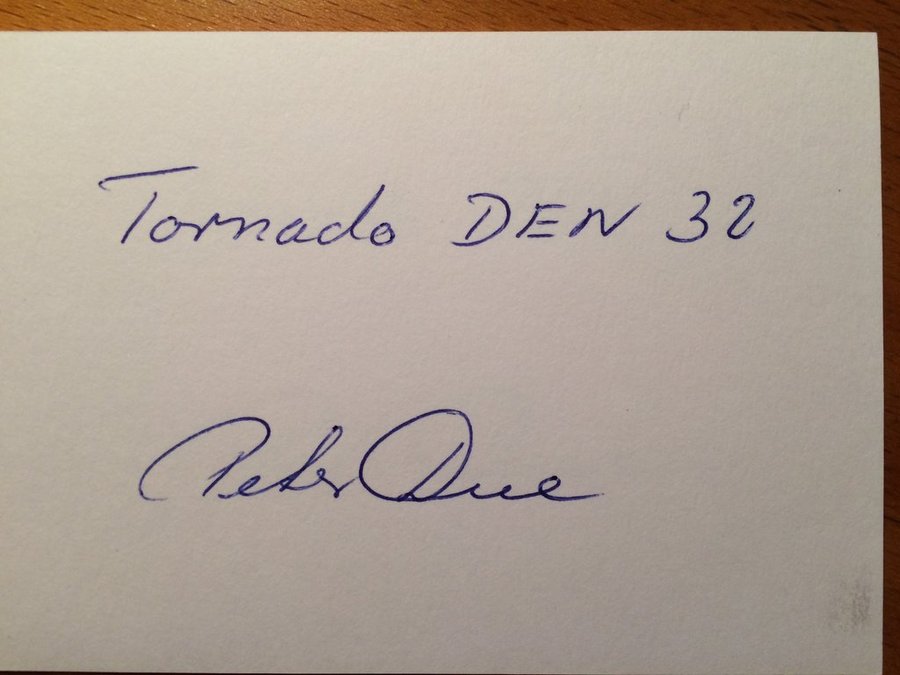 Tornado DEN 32
Peter Due